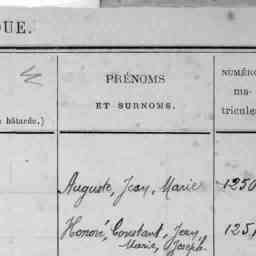 QUE.
PRÉNOMS
ET SURNOMS.
NUMÉRO
ma-
tricules
bâtarde.)
Auguste, Jean, Marie 1250
Honoré, Constant, Jean, 1251
Marie, Joseph.